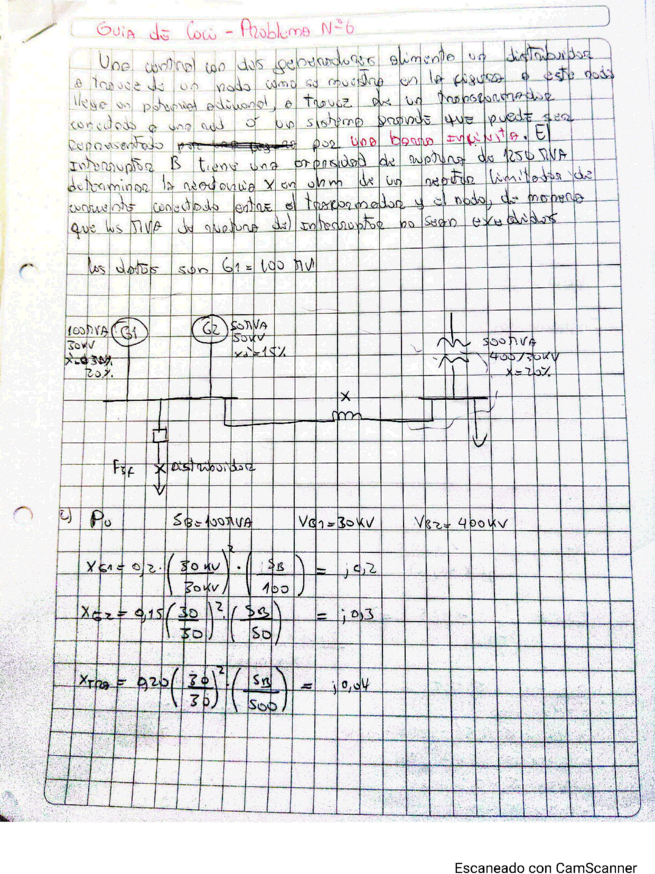 Guia de CoCo - Problema N°6
Una central con dos generadores alimenta un distribuidor
a travez de un nodo como se muestra en la figura a este nodo
llega un potencial adicional, a travez de un transformador
conectado a una red o un sistema grande que puede ser
representado por una barra infinita. El
Interruptor B tiene una capacidad de ruptura de 1250 MVA
determinar la reactancia X en ohm de un reactor limitador de
corriente conectado entre el trasformador y el nodo, de manera
que los MVA de ruptura del interruptor no sean excedidos
los datos son G1 = 100 MV
100MVA
30KV
20%
G1
G2
50MVA
30KV
x=15%
500MVA
400/30KV
X=20%
X
F3f
X Distribuidor
Pu SB=100MVA VB1=30KV VB2=400KV
XG1 = 0,2 · (30KV/30KV)² · (SB/100) = j0,2
XG2 = 0,15 (30/30)² · (SB/50) = j0,3
XTRA = 0,20 (30/30)² · (SB/500) = j0,04
Escaneado con CamScanner